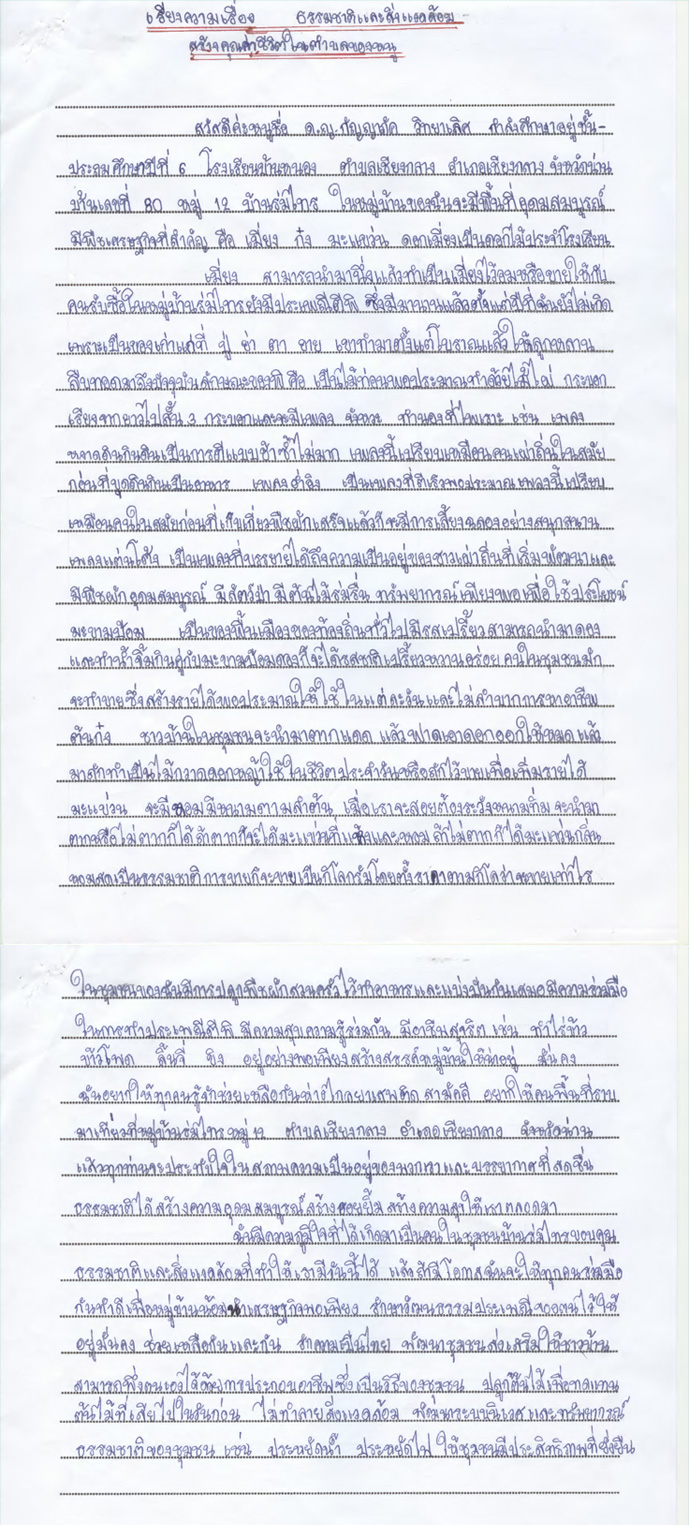 เรียงความเรื่อง ธรรมชาติและสิ่งแวดล้อม
สร้างคุณค่าชีวิตในตำบลของหนู
สวัสดีค่ะหนูชื่อ ด.ญ.กัญญาภัค วิทยาเลิศ กำลังศึกษาอยู่ชั้น-
ประถมศึกษาปีที่ 6 โรงเรียนบ้านหนอง ตำบลเชียงกลาง อำเภอเชียงกลาง จังหวัดน่าน
บ้านเลขที่ 80 หมู่ 12 บ้านร่มไทร ในหมู่บ้านของฉันจะมีพื้นที่อุดมสมบูรณ์
มีพืชเศรษฐกิจที่สำคัญ คือ เมี่ยง ก๋ง มะแขว่น ดอกเมี่ยงเป็นดอกไม้ประจำโรงเรียน
เมี่ยง สามารถนำมานึ่งแล้วทำเป็นเมี่ยงไว้อมหรือขายให้กับ
คนรับซื้อในหมู่บ้านร่มไทรยังมีประเพณีตีพิ ซึ่งมีมานานแล้วตั้งแต่ปีที่ฉันยังไม่เกิด
เพราะเป็นของเก่าแก่ที่ ปู่ ย่า ตา ยาย เขาทำมาตั้งแต่โบราณแล้วให้ลูกหลาน
สืบทอดมาถึงปัจจุบันลักษณะของพิ คือ เป็นไม้ท่อนพอประมาณทำด้วยไม้ไผ่ กระบอก
เรียงจากยาวไปสั้น 3 กระบอกและจะมีเพลง จังหวะ ทำนองที่ไพเราะ เช่น เพลง
หลาดดินกินดินเป็นการตีแบบช้าซ้ำไม่มาก เพลงนี้เปรียบเหมือนคนเผ่าถิ่นในสมัย
ก่อนที่ขุดดินกินเป็นอาหาร เพลงอ่ำจิง เป็นเพลงที่ตีเร็วพอประมาณเพลงนี้เปรียบ
เหมือนคนในสมัยก่อนที่เก็บเกี่ยวพืชผักเสร็จแล้วก็จะมีการเลี้ยงฉลองอย่างสนุกสนาน
เพลงแต่นโต้ง เป็นเพลงที่บรรยายได้ถึงความเป็นอยู่ของชาวเผ่าถิ่นที่เริ่มพัฒนาและ
มีพืชผักอุดมสมบูรณ์ มีสัตว์ป่า มีต้นไม้ร่มรื่น ทรัพยากรณ์เพียงพอเพื่อใช้ประโยชน์
มะขามป้อม เป็นของพื้นเมืองของท้องถิ่นทั่วไปมีรสเปรี้ยวสามารถนำมาดอง
และทำน้ำจิ้มกินคู่กับมะขามป้อมดองก็จะได้รสชาติเปรี้ยวหวานอร่อย คนในชุมชนมัก
จะทำขายซึ่งสร้างรายได้พอประมาณให้ใช้ในแต่ละวันและไม่ลำบากการหาอาชีพ
ต้นก๋ง ชาวบ้านในชุมชนจะนำมาตากแดด แล้วฟาดเอาดอกออกให้หมด แล้ว
มาสักทำเป็นไม้กวาดดอกหญ้าใช้ในชีวิตประจำวันหรือสักไว้ขายเพื่อเพิ่มรายได้
มะแขว่น จะมีหนามมีหนามตามลำต้น เมื่อเราจะสอยต้องระวังหนามทิ่ม จะนำมา
ตากหรือไม่ตากก็ได้ถ้าตากก็จะได้มะแขว่นที่แห้งและหอม ถ้าไม่ตากก็ได้มะแขว่นกลิ่น
หอมสดเป็นธรรมชาติการขายก็จะขายเป็นกิโลกรัมโดยตั้งราคาตามกิโลว่าจะขายเท่าไร
ในชุมชนของฉันมีการปลูกพืชผักสวนครัวไว้ทำอาหารและแบ่งปันกันเสมอมีความร่วมมือ
ในการทำประเพณีตีพิ มีความสุขความรู้ร่วมกัน มีอาชีพสุจริต เช่น ทำไร่ข้าว
ข้าวโพด ลิ้นจี่ ขิง อยู่อย่างพอเพียงสร้างสรรค์หมู่บ้านให้น่าอยู่ มั่นคง
ฉันอยากให้ทุกคนรู้จักช่วยเหลือกันห่างไกลยาเสพติด สามัคคี อยากให้คนพื้นที่ราบ
มาเที่ยวที่หมู่บ้านร่มไทรหมู่ 12 ตำบลเชียงกลาง อำเภอเชียงกลาง จังหวัดน่าน
แล้วทุกท่านจะประทับใจใน สภาพความเป็นอยู่ของพวกเราและบรรยากาศที่สดชื่น
ธรรมชาติได้สร้างความอุดมสมบูรณ์สร้างรอยยิ้มสร้างความสุขให้เราตลอดมา
ฉันมีความภูมิใจที่ได้เกิดมาเป็นคนในชุมชนบ้านร่มไทรขอบคุณ
ธรรมชาติและสิ่งแวดล้อมที่ทำให้เรามีวันนี้ได้ แล้วถ้ามีโอกาสฉันจะให้ทุกคนร่วมมือ
กันทำดีเพื่อหมู่บ้านน้อมนำเศรษฐกิจพอเพียง รักษาวัฒนธรรมประเพณีของตนไว้ให้
อยู่มั่นคง ช่วยเหลือกันและกัน รักความเป็นไทย พัฒนาชุมชนส่งเสริมให้ชาวบ้าน
สามารถพึ่งตนเองได้ด้วยการประกอบอาชีพซึ่งเป็นวิถีของชุมชน ปลูกต้นไม้เพื่อทดแทน
ต้นไม้ที่เสียไปในวันก่อน ไม่ทำลายสิ่งแวดล้อม พัฒนาระบบนิเวศ และทรัพยากรณ์
ธรรมชาติของชุมชน เช่น ประหยัดน้ำ ประหยัดไฟ ให้ชุมชนมีประสิทธิภาพที่ยั่งยืน